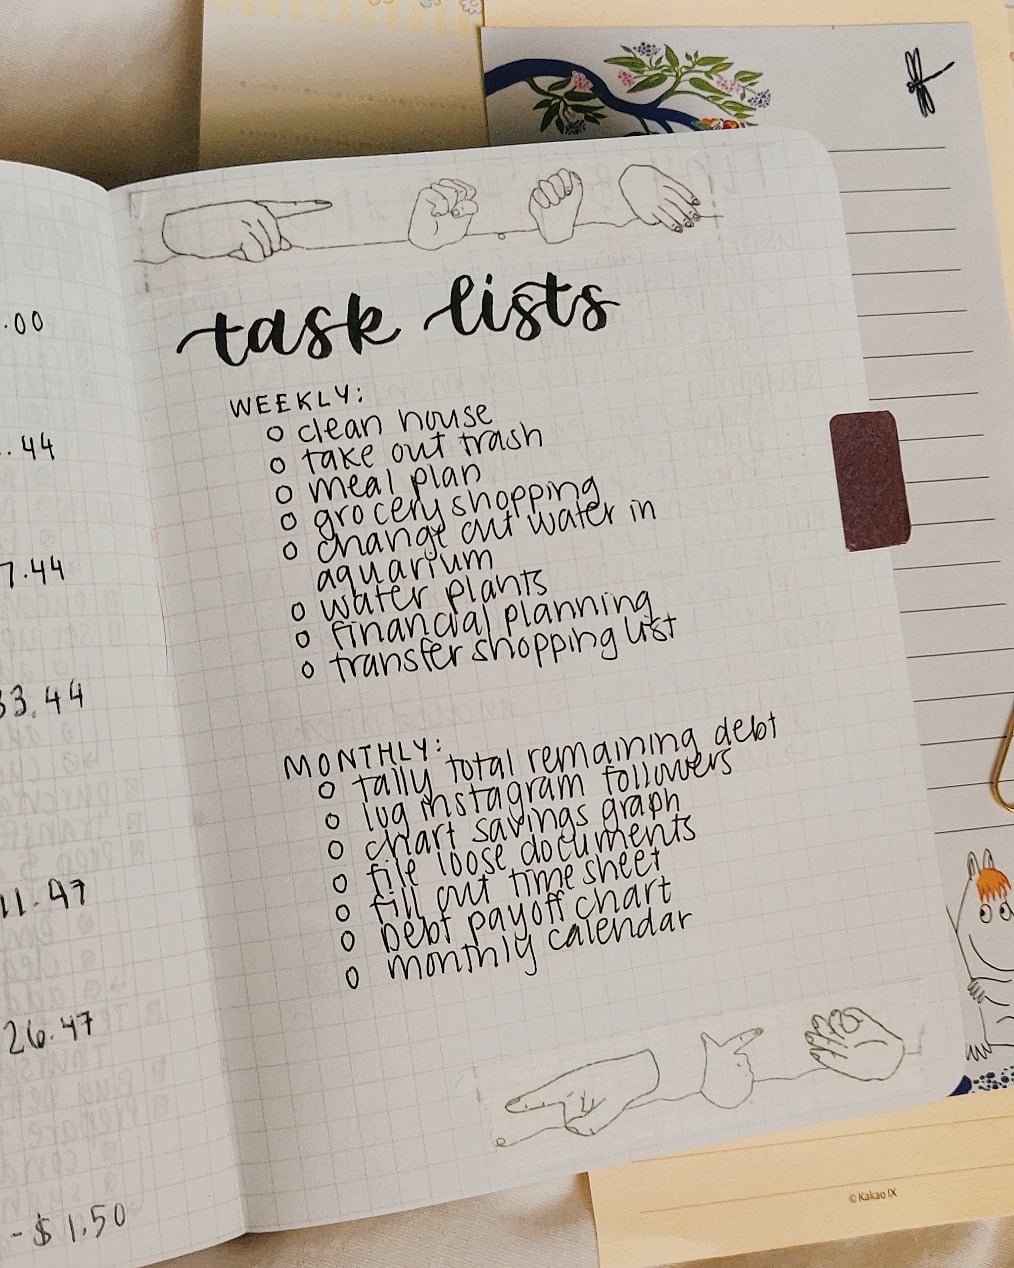 .00
.. 44
7.44
33.44
11.47
26.47
- $ 1.50
task lists
WEEKLY:
o clean house
o take out trash
o meal plan
o grocery shopping
o change out water in
aquarium
o water plants
o financial planning
o transfer shopping list
MONTHLY:
o tally total remaining debt
o log instagram followers
o chart savings graph
o file loose documents
o fill out time sheet
o Debt payoff chart
o monthly calendar
© Kakao IX